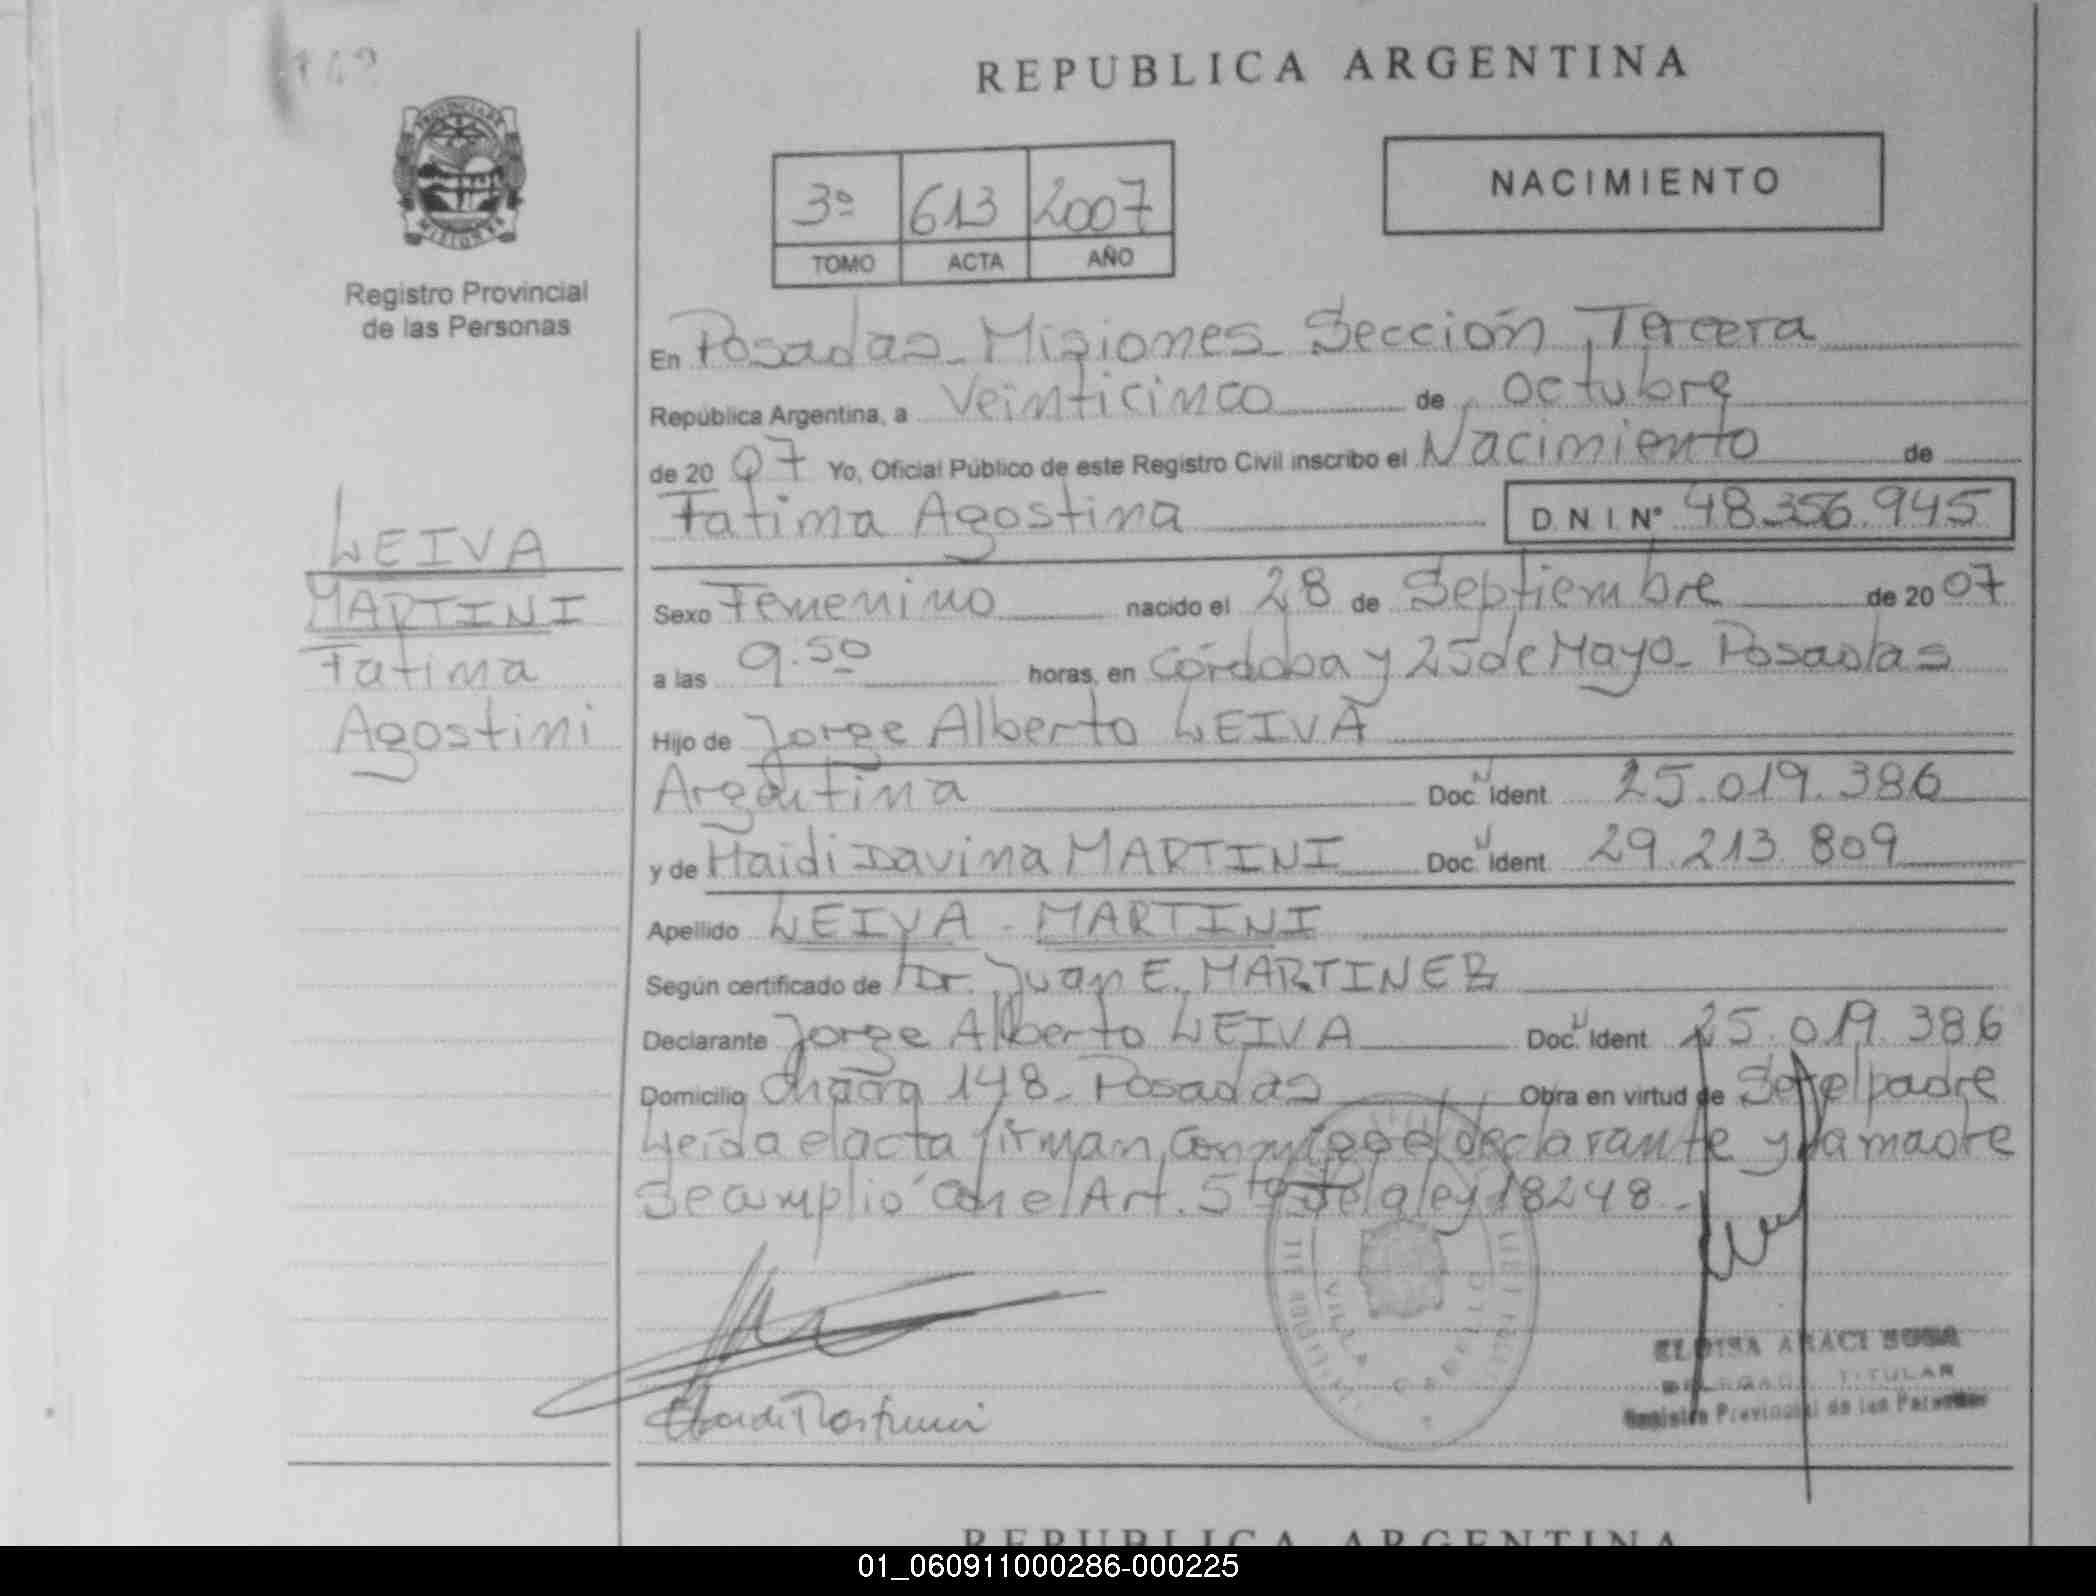 REPUBLICA ARGENTINA
NACIMIENTO
3º 613 2007
TOMO ACTA AÑO
Registro Provincial
de las Personas
LEIVA
MARTINI
Fatima
Agostini
En Posadas - Misiones - Sección Tercera
República Argentina, a Veinticinco de Octubre
de 20 07 Yo, Oficial Público de este Registro Civil inscribo el Nacimiento de
Fatima Agostina D N I Nº 48.356.945
Sexo Femenino nacido el 28 de Septiembre de 20 07
a las 9.50 horas, en Córdoba y 25 de Mayo - Posadas
Hijo de Jorge Alberto LEIVA
Argentina Doc. Ident 25.019.386
y de Haidi Davina MARTINI Doc. Ident 29.213.809
Apellido LEIVA - MARTINI
Según certificado de Dr. Juan E. MARTINEZ
Declarante Jorge Alberto LEIVA Doc. Ident 25.019.386
Domicilio Chacra 148 - Posadas Obra en virtud de Ser el padre
Leída el acta firman conmigo el declarante y la madre
Se cumplió con el Art. 5to de la ley 18248 -
TITULAR
Registro Provincial de las Personas
REPUBLICA ARGENTINA
01_060911000286-000225